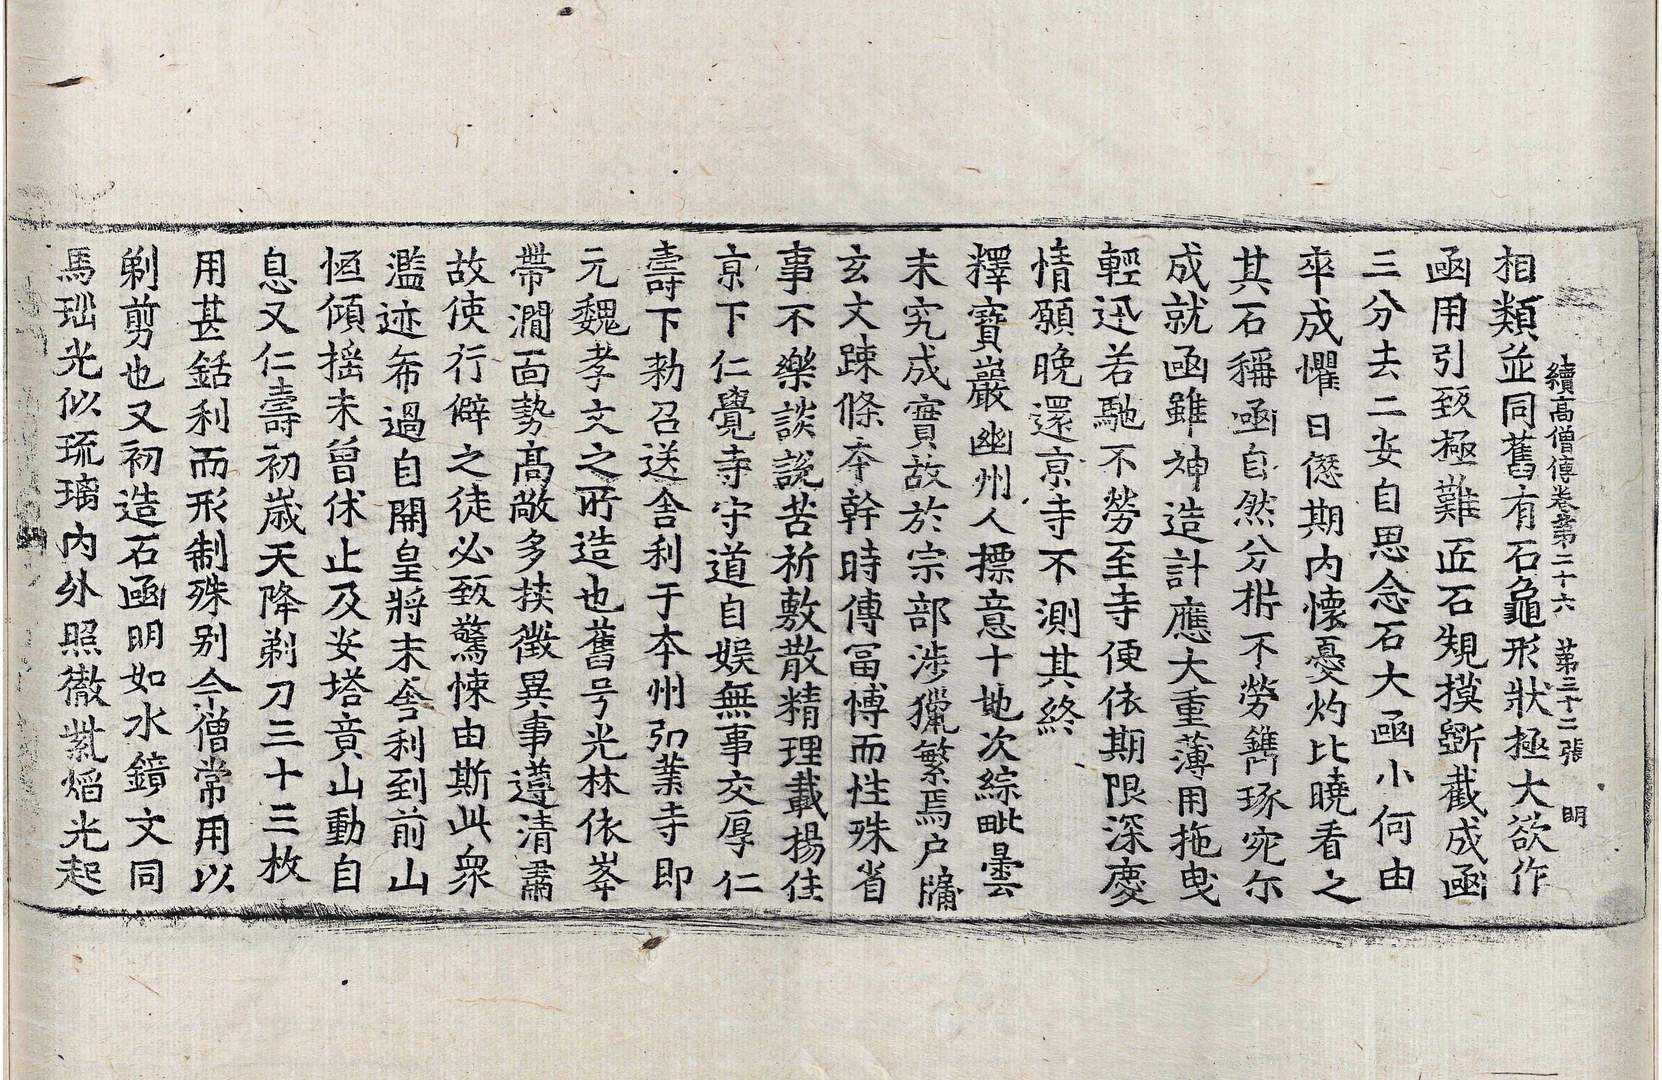 續高僧傳卷第二十六 第三十二張 明
相類並同舊有石龜形狀極大欲作
函用引致極難匠石規摸斲截成函
三分去二安自思念石大函小何由
卒成懼日愆期内懷憂灼比曉看之
其石稱函自然分析不勞鐫琢宛尔
成就函雖神造計應大重薄用拖曳
輕迅若馳不勞至寺便依期限深慶
情願晚還京寺不測其終
釋寶巖幽州人摽意十地次綜毗曇
末究成實故於宗部涉獵繁焉户牖
玄文踈條夲幹時傳冨博而性殊省
事不樂談說苦祈敷散精理載揚住
京下仁覺寺守道自娱無事交厚仁
壽下勑召送舍利于夲州弘業寺即
元魏孝文之所造也舊号光林依峯
帶澗面勢高敞多挾徵異事遵清肅
故使行僻之徒必致驚悚由斯此衆
濫迹希過自開皇將末舍利到前山
恒傾揺未曾休止及安塔竟山動自
息又仁壽初歲天降剃刀三十三枚
用甚銛利而形制殊别今僧常用以
剃剪也又初造石函明如水鏡文同
馬瑙光似琉璃内外照徹紫焰光起